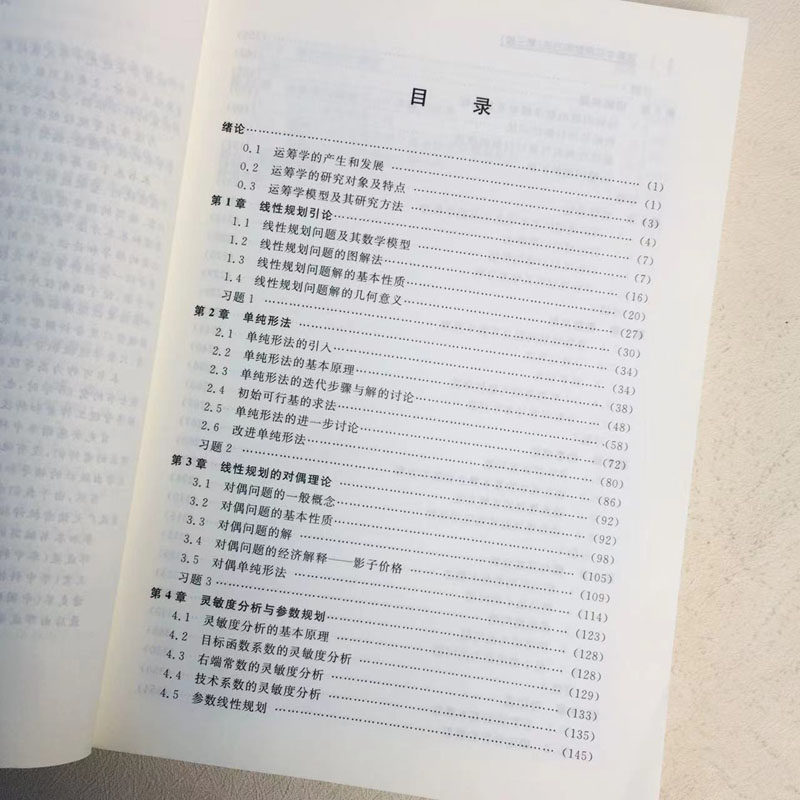 目 录
绪论……(1)
0.1 运筹学的产生和发展……(1)
0.2 运筹学的研究对象及特点……(3)
0.3 运筹学模型及其研究方法……(4)
第1章 线性规划引论……(7)
1.1 线性规划问题及其数学模型……(7)
1.2 线性规划问题的图解法……(16)
1.3 线性规划问题解的基本性质……(20)
1.4 线性规划问题解的几何意义……(27)
习题1……(30)
第2章 单纯形法……(34)
2.1 单纯形法的引入……(34)
2.2 单纯形法的基本原理……(38)
2.3 单纯形法的迭代步骤与解的讨论……(48)
2.4 初始可行基的求法……(58)
2.5 单纯形法的进一步讨论……(72)
2.6 改进单纯形法……(80)
习题2……(86)
第3章 线性规划的对偶理论……(92)
3.1 对偶问题的一般概念……(92)
3.2 对偶问题的基本性质……(98)
3.3 对偶问题的解……(105)
3.4 对偶问题的经济解释——影子价格……(109)
3.5 对偶单纯形法……(114)
习题3……(123)
第4章 灵敏度分析与参数规划……(128)
4.1 灵敏度分析的基本原理……(128)
4.2 目标函数系数的灵敏度分析……(129)
4.3 右端常数的灵敏度分析……(133)
4.4 技术系数的灵敏度分析……(135)
4.5 参数线性规划……(145)